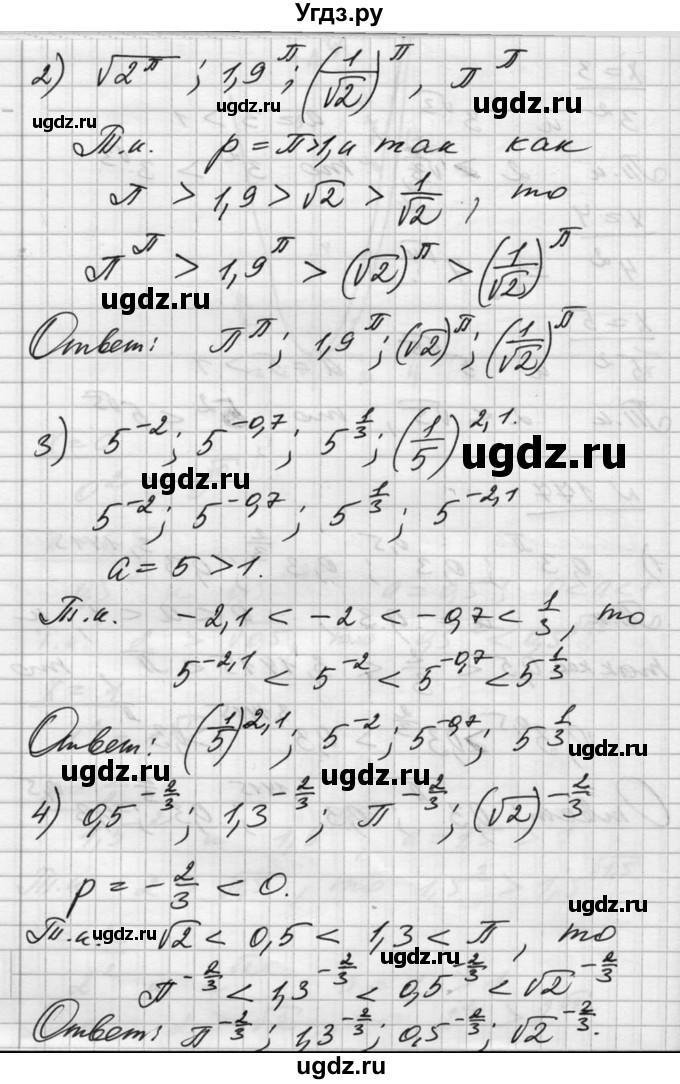 Угдз.ру
2) √2^π ; 1,9^π ; (1/√2)^π , π^π
ugdz.ru ugdz.ru ugdz.ru
Т.к. p = π>1, и так как
π > 1,9 > √2 > 1/√2 , то
π^π > 1,9^π > (√2)^π > (1/√2)^π
ugdz.ru ugdz.ru
Ответ: π^π ; 1,9^π ; (√2)^π ; (1/√2)^π
ugdz.ru
3) 5^-2 ; 5^-0,7 ; 5^1/3 ; (1/5)^2,1.
ugdz.ru ugdz.ru
5^-2 ; 5^-0,7 ; 5^1/3 ; 5^-2,1
a = 5 > 1.
Т.к. -2,1 < -2 < -0,7 < 1/3 , то
5^-2,1 < 5^-2 < 5^-0,7 < 5^1/3
Ответ: (1/5)^2,1 ; 5^-2 ; 5^-0,7 ; 5^1/3
ugdz.ru ugdz.ru ugdz.ru
4) 0,5^-2/3 ; 1,3^-2/3 ; π^-2/3 ; (√2)^-2/3
p = -2/3 < 0.
ugdz.ru
Т.к. √2 < 0,5 < 1,3 < π , то
ugdz.ru ugdz.ru
π^-2/3 < 1,3^-2/3 < 0,5^-2/3 < √2^-2/3
Ответ: π^-2/3 ; 1,3^-2/3 ; 0,5^-2/3 ; √2^-2/3.
ugdz.ru